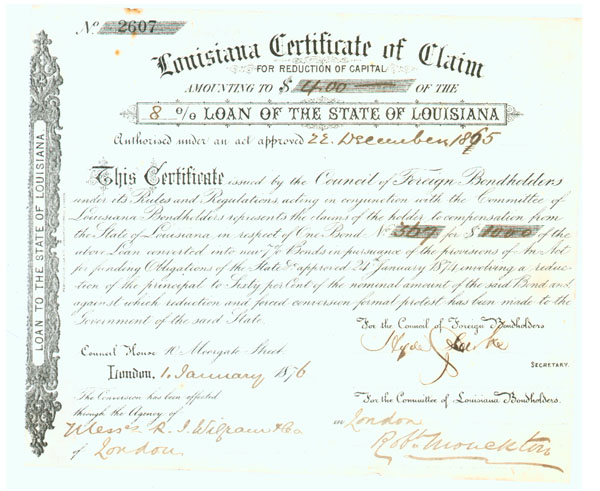 No 2607
Louisiana Certificate of Claim
FOR REDUCTION OF CAPITAL
AMOUNTING TO $ 400 OF THE
8 % LOAN OF THE STATE OF LOUISIANA
Authorised under an act approved 22. December 1865
This Certificate issued by the Council of Foreign Bondholders
under its Rules and Regulations, acting in conjunction with the Committee of
Louisiana Bondholders represents the claims of the holder to compensation from
the State of Louisiana, in respect of One Bond No 567 for $ 1000 of the
above Loan converted into new 7% Bonds in pursuance of the provisions of An Act
for funding Obligations of the State approved 24th January 1874 involving a reduc
tion of the principal to Sixty per Cent of the nominal amount of the said Bond and
against which reduction and forced conversion formal protest has been made to the
Government of the said State.
For the Council of Foreign Bondholders
Hyde Clarke
SECRETARY.
Council House 10 Moorgate Street.
London. 1. January 1876
The Conversion has been effected
through the Agency of
Mess.rs R. J. Wigram & Co
of London
For the Committee of Louisiana Bondholders.
London
Robt. Monckton
LOAN TO THE STATE OF LOUISIANA